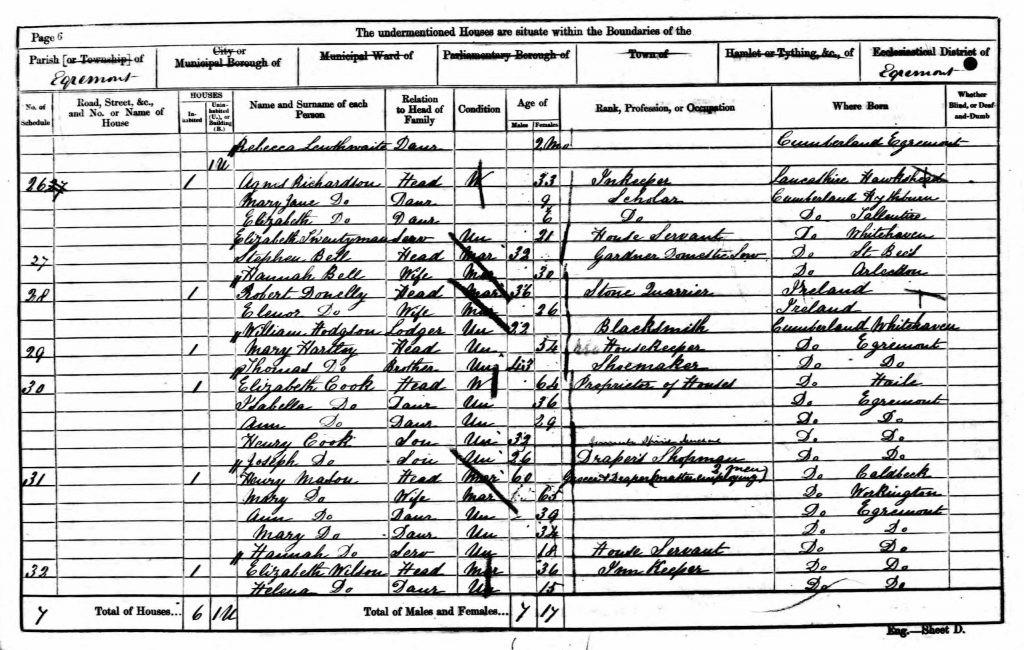 Page 6 The undermentioned Houses are situate within the Boundaries of the
Parish [or Township] of City or Municipal Borough of Municipal Ward of Parliamentary Borough of Town of Hamlet or Tything, &c., of Ecclesiastical District of
Egremont Egremont
No. of Schedule Road, Street, &c., and No. or Name of House HOUSES Inhabited Uninhabited (U.), or Building (B.) Name and Surname of each Person Relation to Head of Family Condition Age of Males Females Rank, Profession, or Occupation Where Born Whether Blind, or Deaf-and-Dumb
Rebecca Lewthwaite Daur 2 Mo Cumberland Egremont
1U
26 1 Agnes Richardson Head W 33 Inkeeper Lancashire Hawkshead
Mary Jane Do Daur 9 Scholar Cumberland
Elizabeth Do Daur Do Do Tallentire
Elizabeth Twentyman Serv Un 21 House Servant Do Whitehaven
27 Stephen Bell Head Mar 32 Gardner Domestic Serv Do St. Bees
Hannah Bell Wife Mar 30 Do Arlecdon
28 1 Robert Donelly Head Mar 36 Stone Quarrier Ireland
Elenor Do Wife Mar 26 Ireland
William Hodgson Lodger Un 22 Blacksmith Cumberland Whitehaven
29 1 Mary Hartley Head Un 54 HouseKeeper Do Egremont
Thomas Do Brother Un 43 Shoemaker Do Do
30 1 Elizabeth Cook Head W 64 Proprietor of Houses Do Haile
Isabella Do Daur Un 36 Do Egremont
Ann Do Daur Un 29 Do Do
Henry Cook Son Un 32 Do Do
Joseph Do Son Un 26 Drapers Shopman Do Do
31 1 Henry Mason Head Mar 60 Grocer & Draper (master employing 2 men) Do Caldbeck
Mary Do Wife Mar 65 Do Workington
Ann Do Daur Un 39 Do Egremont
Mary Do Daur Un 34 Do Do
Hannah Do Serv Un 18 House Servant Do Do
32 1 Elizabeth Wilson Head Mar 36 Inn Keeper Do Do
Helena Do Daur Un 15 Do Do
7 Total of Houses... 6 1U Total of Males and Females... 7 17
Eng.—Sheet D.